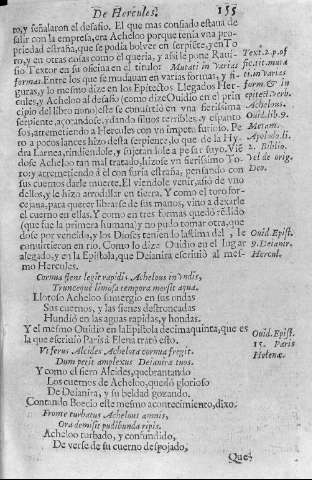 De Hercules. 155
ro, y señalaron el desafio. El que mas confiado estaua de
salir con la empresa, era Acheloo porque tenia vna pro-
priedad estraña, que se podia bolver en serpiẽte, y en To
ro, y en otras cosas como el queria, y assi le pone Raui-
sio Textor en su oficina en el titulo: Mutati in varias
formas. Entre los que se mudauan en varias formas, y fi-
guras, y lo mesmo dize en los Epitectos. Llegados Her-
cules, y Acheloo al desafio (como dize Ouidio en el prin
cipio del libro nono) este se conuirtio en vna fierissima
serpiente, açorandose, y dando siluos terribles, y espanto
sos, arremetiendo a Hercules con vn impetu furioso. Pe
ro a pocos lances hizo desta serpiente, lo que de la Hy-
dra Lernea, rindiendole, y sujetandole a pesar suyo. Viẽ
dose Acheloo tan mal tratado, hizose vn fierissimo To-
ro; y arremetiendo á el con furia estraña, pensando con
sus cuernos darle muerte. El viendole venir, asió de vno
dellos, y le hizo arrodillar en tierra, Y como el toro for-
cejara, para querer librarse de sus manos, vino a dexarle
el cuerno en ellas. Y como en tres formas quedó rẽdido
(que fue la primera humana) y no pudo tomar otra, que
dose por vencido, y los Dioses teniendo lastima del, le
conuirtieron en rio. Como lo dize Ouidio en el lugar
alegado, y en la Epistola, que Deianira escriuió al mes-
mo Hercules.
Text. 2. p. of
fic. tit. muta
ti. in varias
form. & in
epiteti. verb.
Achelous.
Ouid. lib. 9.
Metam.
Apolodo. li.
2. Biblio.
Vel de orig.
Deo.
Ouid. Epist.
9. Deianir.
Hercul.
Cornua flens legit rapidis Achelous in vndis,
Truncaque limosa tempora mersit aqua.
Lloroso Acheloo sumergio en sus ondas
Sus cuernos, y las sienes destroncadas
Hundió en las aguas rapidas, y hondas.
Y el mesmo Ouidio en la Epistola decimaquinta, que es
la que escriuio Paris á Elena trató esto.
Ouid. Epist.
15. Paris
Helenæ.
Vt ferus Alcides Acheloia cornua fregit.
Dum petit amplexus Deianira tuos.
Y como el fiero Alcides, quebrantando
Los cuernos de Acheloo, quedó glorioso
De Deianira, y su beldad gozando.
Contando Boecio este mesmo acontecimiento, dixo.
Fronte turbatus Achelous amnis,
Ora demisit pudibunda ripis.
Acheloo turbado, y confundido,
De verse de su cuerno despojado,
Que